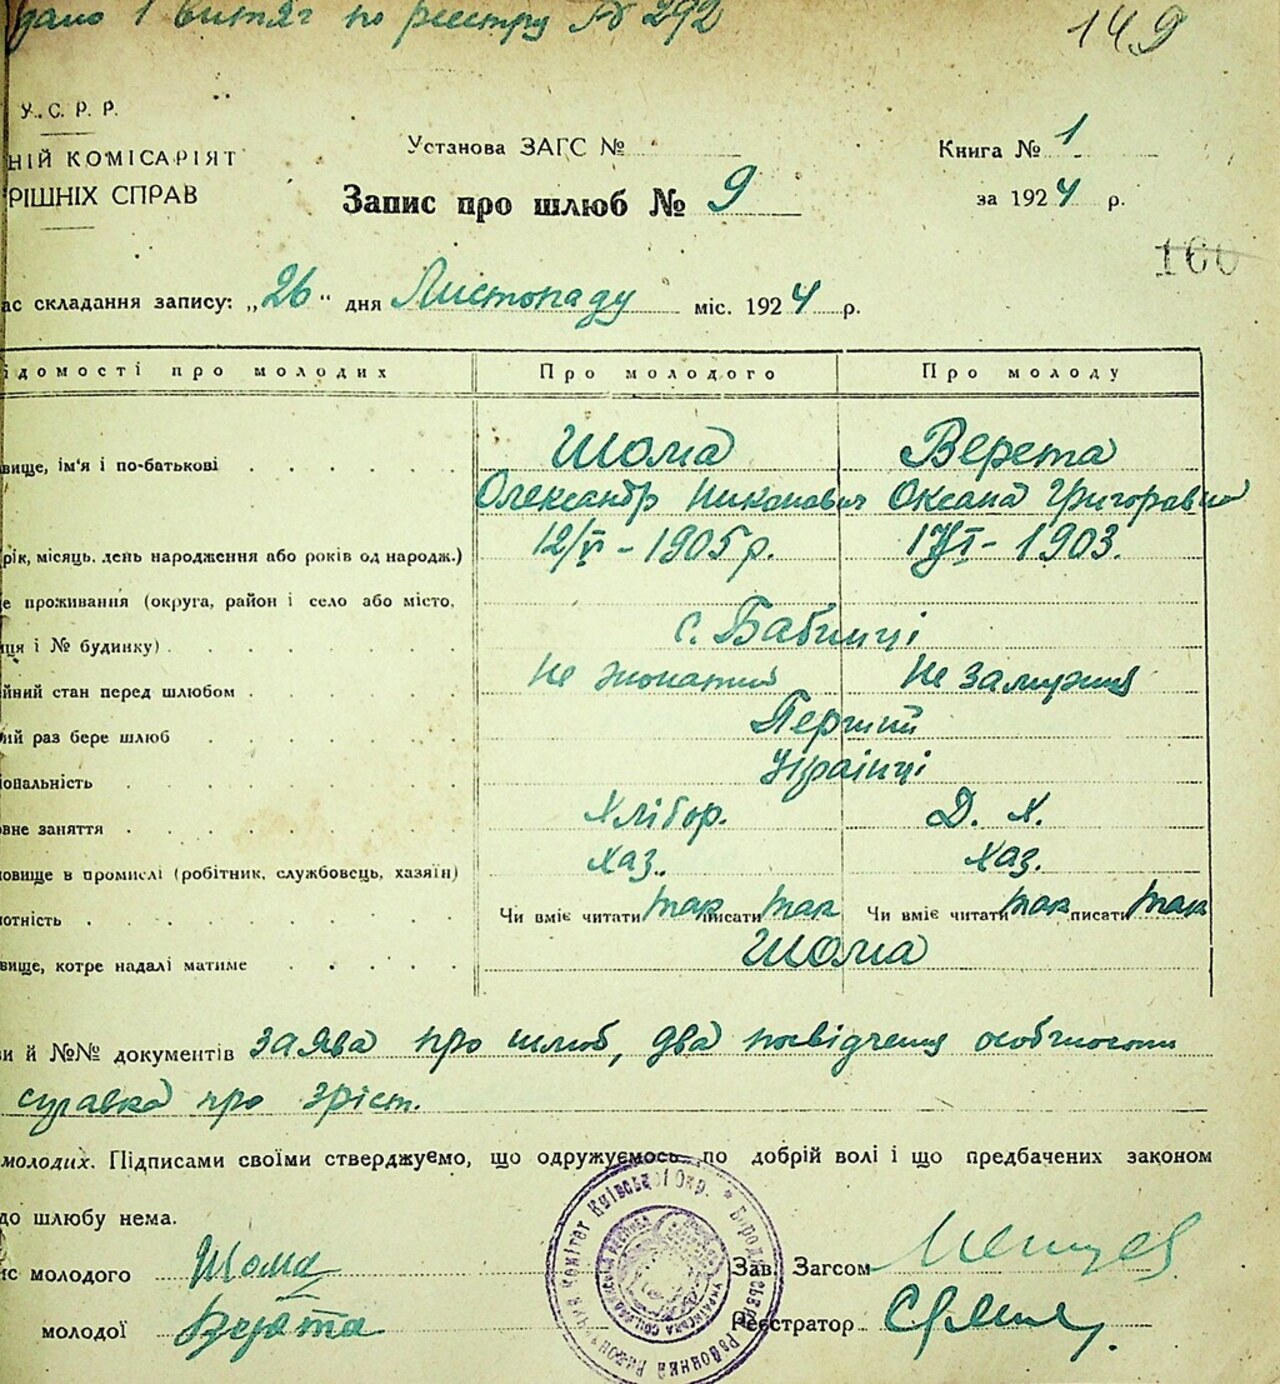 дано 1 витяг по реєстру № 292
149
У.С.Р.Р.
НІЙ КОМІСАРІЯТ
РІШНІХ СПРАВ
Установа ЗАГС №
Книга № 1
Запис про шлюб № 9
за 1924 р.
160
ас складання запису: „26" дня Листопаду міс. 1924 р.
ідомості про молодих
Про молодого
Про молоду
вище, ім'я і по-батькові
Шома
Верета
Олександр Никонович
Оксана Григоровна
рік, місяць, день народження або років од народж.)
12/VI - 1905 р.
1903.
е проживання (округа, район і село або місто,
иця і № будинку)
с. Бабинці
йний стан перед шлюбом
Не жонатий
Не замужня
ий раз бере шлюб
Перший
іональність
Українці
вне заняття
Хлібор.
Д. Х.
овище в промислі (робітник, службовець, хазяїн)
Хаз.
Хаз.
отність
Чи вміє читати так писати так
Чи вміє читати так писати так
вище, котре надалі матиме
Шома
и й №№ документів заява про шлюб, два посвідчення особистости
справка про зріст.
молодих. Підписами своїми стверджуємо, що одружуємось по добрій волі і що предбачених законом
до шлюбу нема.
ис молодого Шома
Зав. Загсом
молодої Верета
Реєстратор
комітет Київської Окр. * Бородянськ